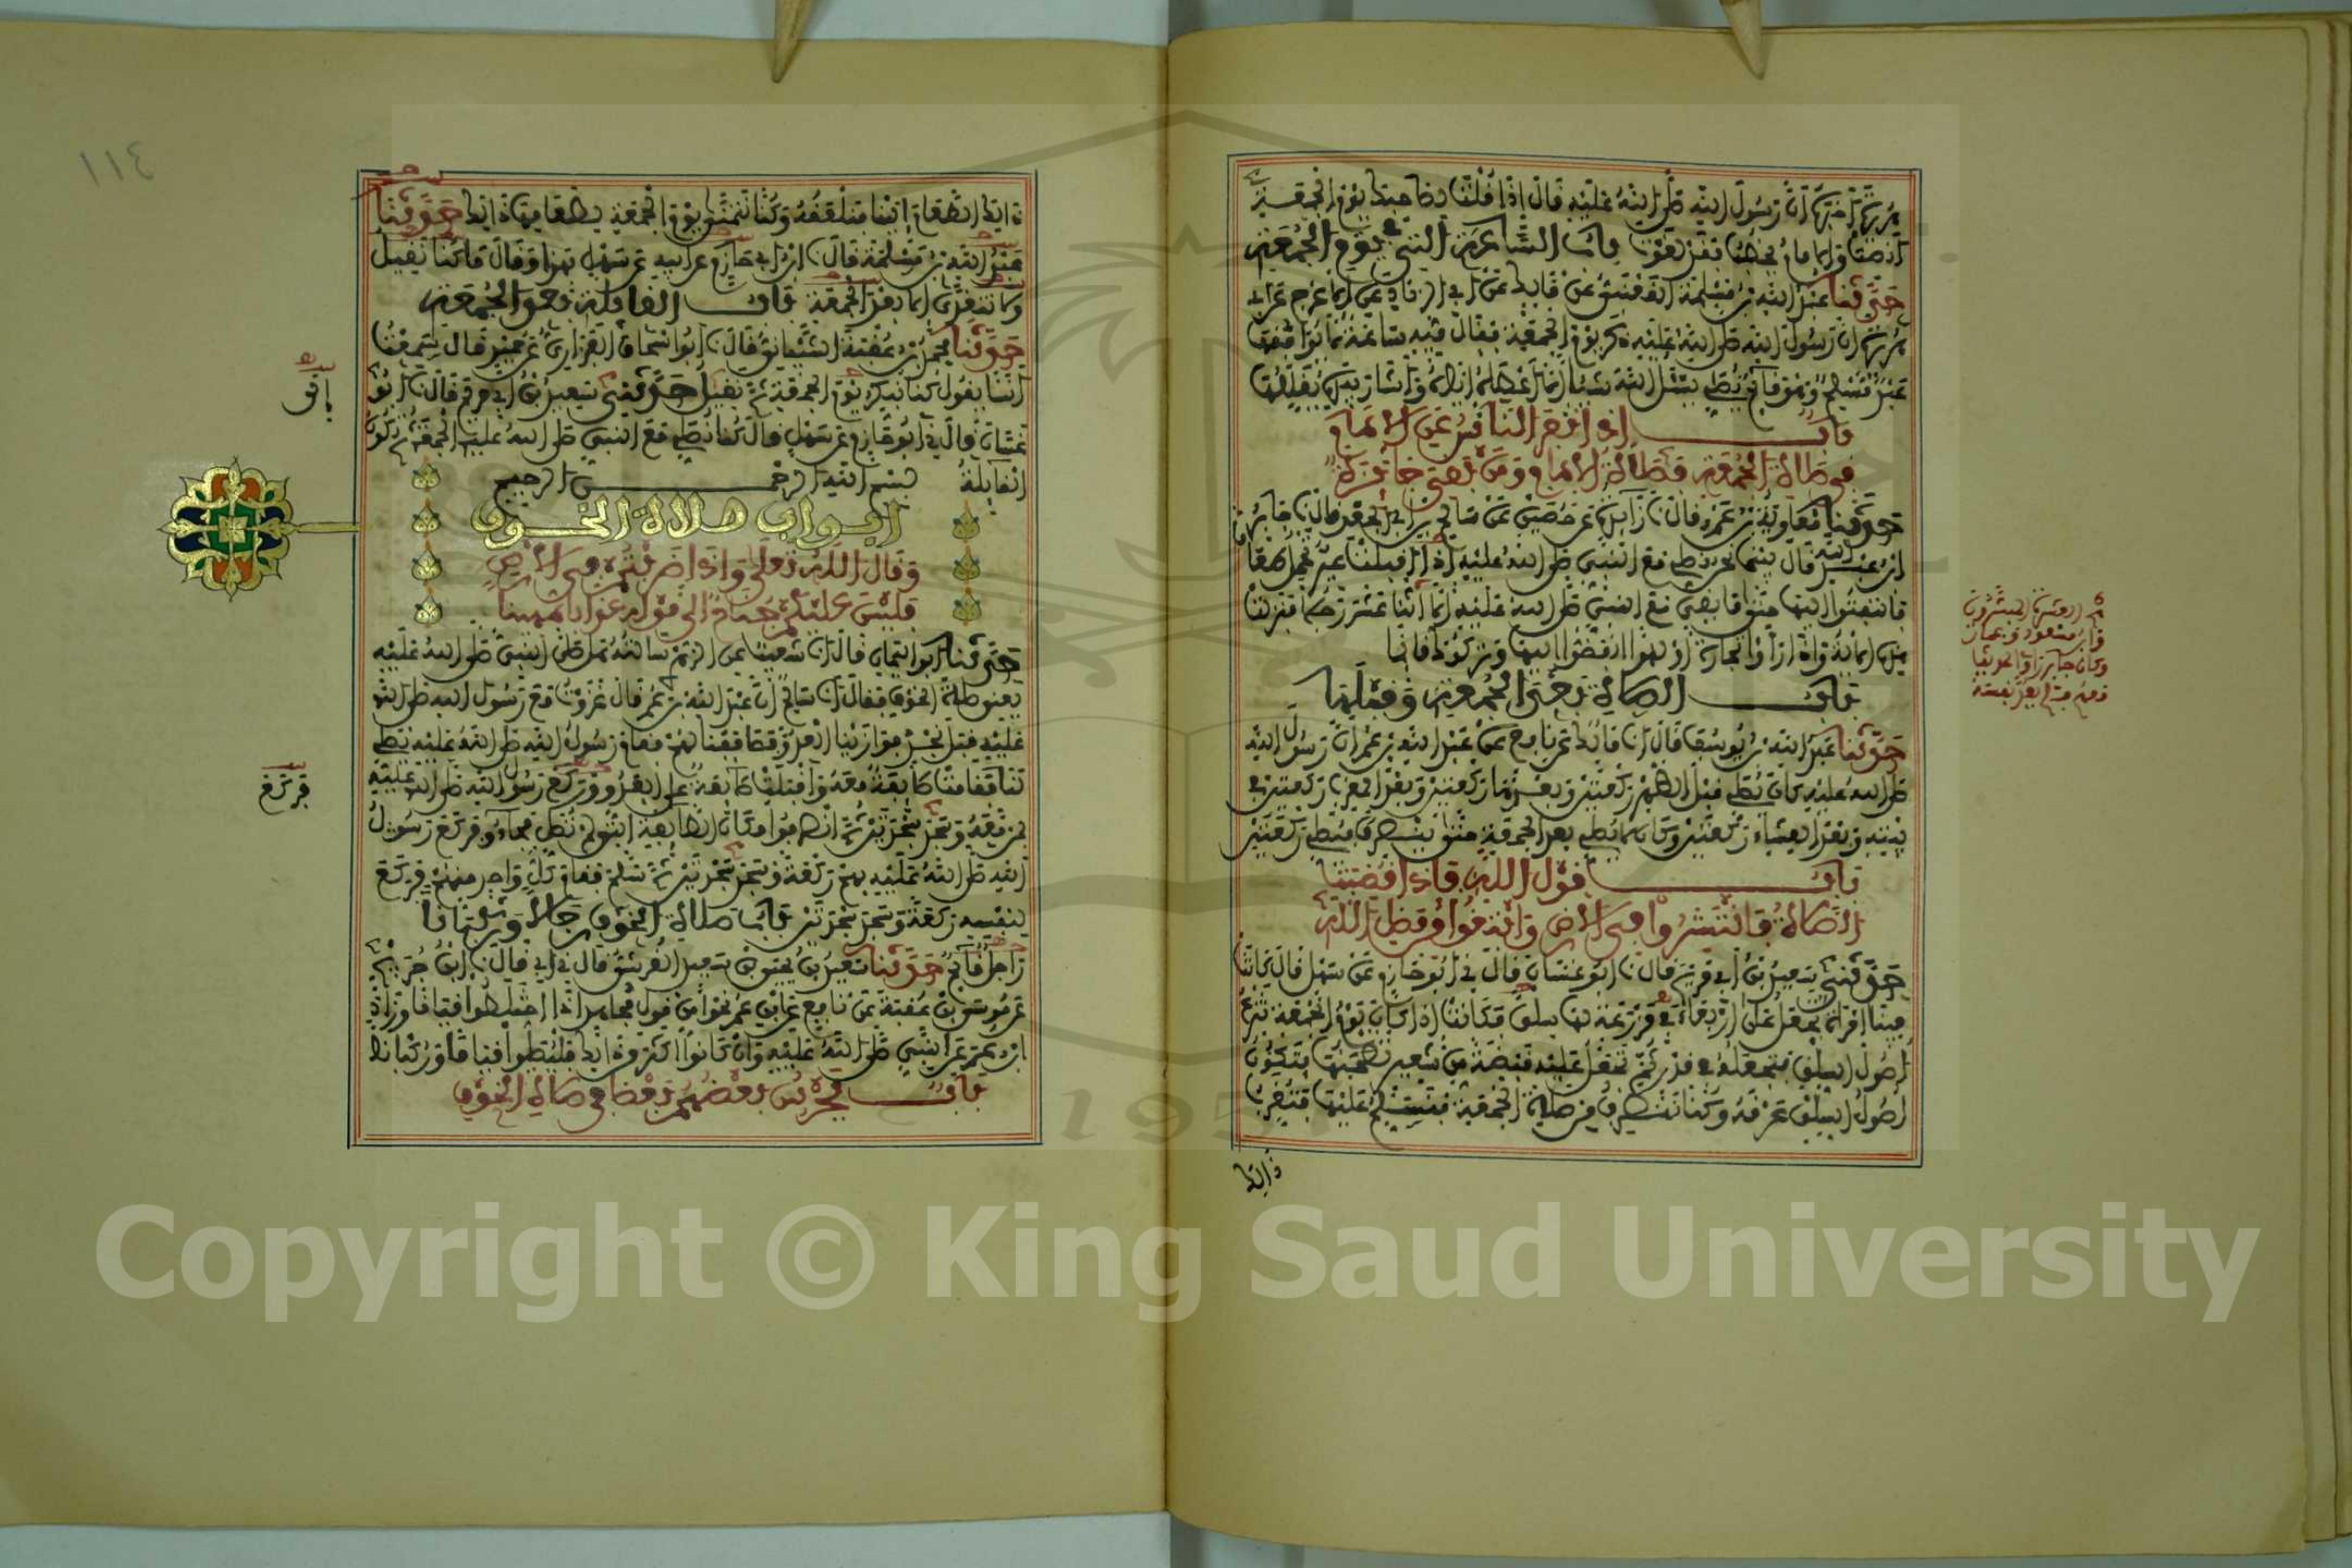 هريرة أخبره أن رسول الله صلى الله عليه قال إذا قلت لصاحبك يوم الجمعة
أنصت والإمام يخطب فقد لغوت باب الساعة التي في يوم الجمعة
حدثنا عبد الله بن مسلمة القعنبي عن مالك عن أبي الزناد عن الأعرج عن أبي
هريرة أن رسول الله صلى الله عليه ذكر يوم الجمعة فقال فيه ساعة لا يوافقها
عبد مسلم وهو قائم يصلي يسئل الله شيئا إلا أعطاه إياه وأشار بيده يقللها
باب إذا نفر الناس عن الإمام
في صلاة الجمعة فصلاة الإمام ومن بقي جائزة
حدثنا معاوية بن عمرو قال نا زائدة عن حصين عن سالم بن أبي الجعد قال نا جابر
ابن عبد الله قال بينما نحن نصلي مع النبي صلى الله عليه إذ أقبلت عير تحمل طعاما
فالتفتوا إليها حتى ما بقي مع النبي صلى الله عليه إلا اثنا عشر رجلا فنزلت
هذه الآية وإذا رأوا تجارة أو لهوا انفضوا إليها وتركوك قائما
باب الصلاة بعد الجمعة وقبلها
حدثنا عبد الله بن يوسف قال أنا مالك عن نافع عن عبد الله بن عمر أن رسول الله
صلى الله عليه كان يصلي قبل الظهر ركعتين وبعدها ركعتين وبعد المغرب ركعتين في
بيته وبعد العشاء ركعتين وكان لا يصلي بعد الجمعة حتى ينصرف فيصلي ركعتين
باب قول الله فإذا قضيت
الصلاة فانتشروا في الأرض وابتغوا من فضل الله
حدثني سعيد بن أبي مريم قال نا أبو غسان قال ني أبو حازم عن سهل قال كانت
فينا امرأة تجعل على أربعاء في مزرعة لها سلقا فكانت إذا كان يوم الجمعة تنزع
أصول السلق فتجعله في قدر ثم تجعل عليه قبضة من شعير تطحنها فتكون
أصول السلق عرقه وكنا ننصرف من صلاة الجمعة فنسلم عليها فتقرب
ذالك
العشرة المبشرون
وابن مسعود
١١٤
ذالك الطعام إلينا فنلعقه وكنا نتمنى يوم الجمعة لطعامها ذالك حدثنا
عبد الله بن مسلمة قال نا ابن أبي حازم عن أبيه عن سهل بهذا وقال ما كنا نقيل
ولا نتغدى إلا بعد الجمعة باب القائلة بعد الجمعة
حدثنا محمد بن عقبة الشيباني قال نا أبو إسحاق الفزاري عن حميد قال سمعت
أنسا يقول كنا نبكر يوم الجمعة ثم نقيل حدثني سعيد بن أبي مريم قال نا أبو
غسان قال ني أبو حازم عن سهل قال كنا نصلي مع النبي صلى الله عليه الجمعة ثم تكون
القائلة بسم الله الرحمن الرحيم
أبواب صلاة الخوف
وقال الله تعالى وإذا ضربتم في الأرض
فليس عليكم جناح إلى قوله عذابا مهينا
حدثنا أبو اليمان قال أنا شعيب عن الزهري سألته هل صلى النبي صلى الله عليه
يعني صلاة الخوف فقال أنا سالم أن عبد الله بن عمر قال غزوت مع رسول الله صلى الله
عليه قبل نجد فوازينا العدو فصاففنا لهم فقام رسول الله صلى الله عليه يصلي
لنا فقامت طائفة معه وأقبلت طائفة على العدو وركع رسول الله صلى الله عليه
بمن معه وسجد سجدتين ثم انصرفوا مكان الطائفة التي لم تصل فجاءوا فركع رسول
الله صلى الله عليه بهم ركعة وسجد سجدتين ثم سلم فقام كل واحد منهم فركع
لنفسه ركعة وسجد سجدتين باب صلاة الخوف رجالا وركبانا
راجل قائم حدثنا سعيد بن يحيى بن سعيد القرشي قال ني أبي قال نا ابن جريج
عن موسى بن عقبة عن نافع عن ابن عمر نحوا من قول مجاهد إذا اختلطوا قياما وزاد
ابن عمر عن النبي صلى الله عليه وإن كانوا أكثر من ذالك فليصلوا قياما وركبانا
باب يحرس بعضهم بعضا في صلاة الخوف
فركع
Copyright © King Saud University
1957